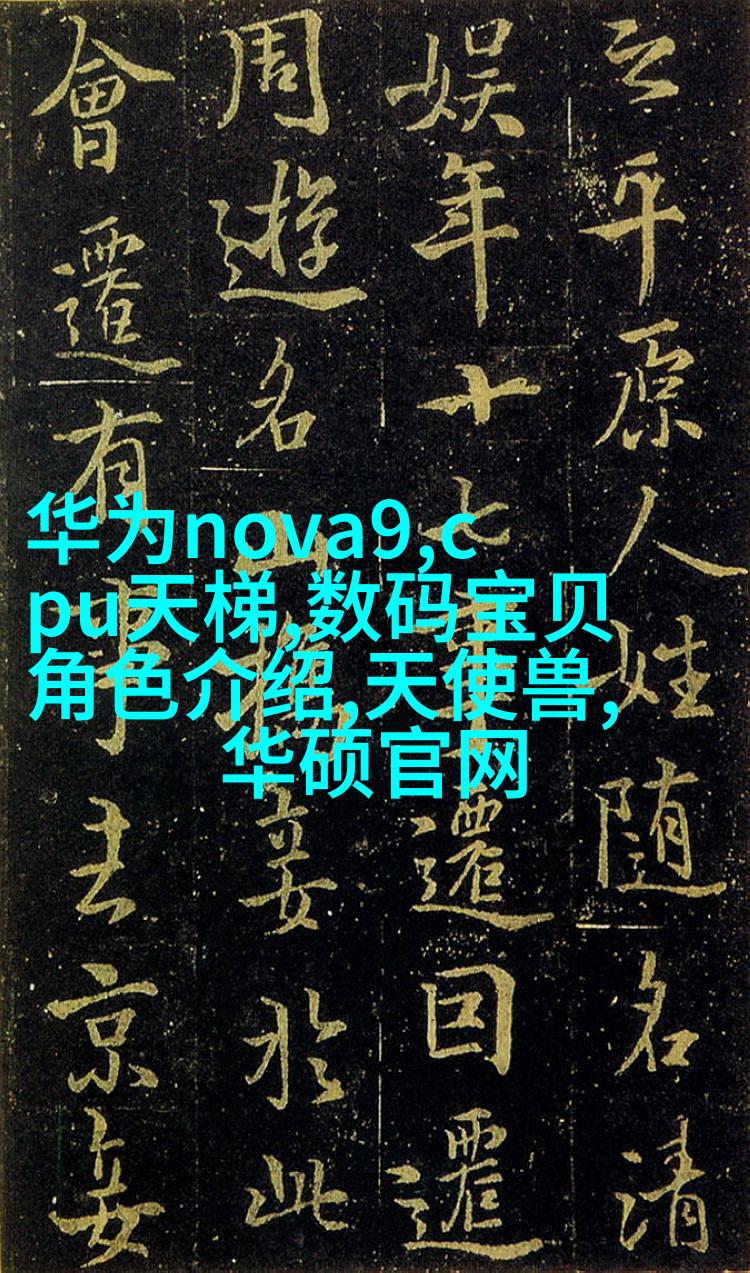 华为nova9,c
pu天梯,数码宝贝
角色介绍,天使兽,
华硕官网
之平原人姓随名清
娱年十七遷因遷
周遊名山妾於此
會遷有事去京妾